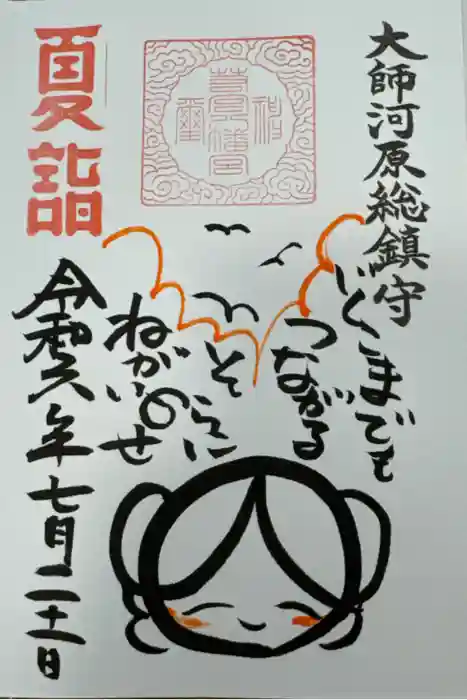 大師河原総鎮守
どこまでも
つながる
そらに
ねがいのせ
夏詣
令和六年七月二十一日